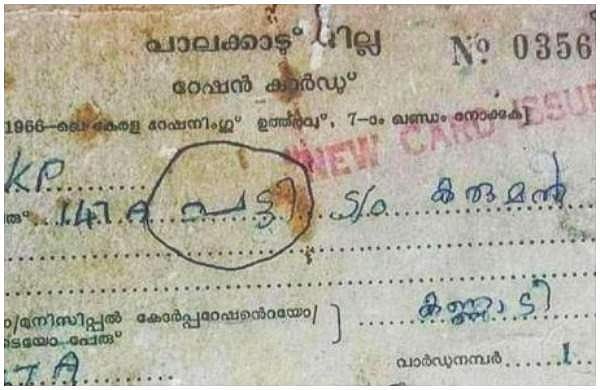 പാലക്കാട് ജില്ല
Nº 0356
റേഷൻ കാർഡ്
1966-ലെ കേരള റേഷനിംഗ് ഉത്തരവു്, 7-ാം ഖണ്ഡം നോക്കുക]
NEW CARD ISSUE
KP
147 A പട്ടി S/o കരുമൻ
മുനിസിപ്പൽ കോർപ്പറേഷന്റെയോ/
പേരു് കണ്ണാടി
7 A
വാർഡുനമ്പർ 1